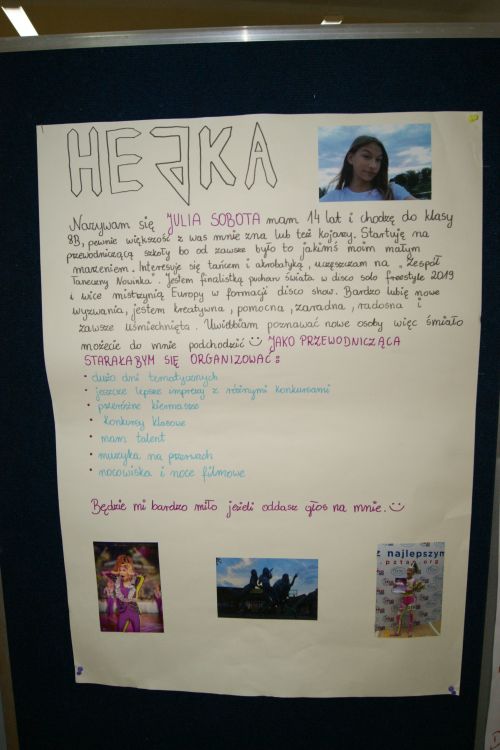 HEJKA
Nazywam się JULIA SOBOTA mam 14 lat i chodzę do klasy
8B, pewnie większość z was mnie zna lub też kojarzy. Startuję na
przewodniczącą szkoły bo od zawsze było to jakimś moim małym
marzeniem. Interesuje się tańcem i akrobatyką, uczęszczam na „Zespół
Taneczny Nowinka". Jestem finalistką pucharu świata w disco solo freestyle 2019
i wice mistrzynią Europy w formacji disco show. Bardzo lubię nowe
wyzwania, jestem kreatywna, pomocna, zaradna, radosna i
zawsze uśmiechnięta. Uwielbiam poznawać nowe osoby więc śmiało
możecie do mnie podchodzić JAKO PRZEWODNICZĄCA
STARAŁABYM SIĘ ORGANIZOWAĆ:
• dużo dni tematycznych
• jeszcze lepsze imprezy z różnymi konkursami
• przeróżne kiermasze
• konkursy klasowe
• mam talent
• muzyka na przerwach
• nocowiska i noce filmowe
Będzie mi bardzo miło jeżeli oddasz głos na mnie.
z najlepszym
pztan.org